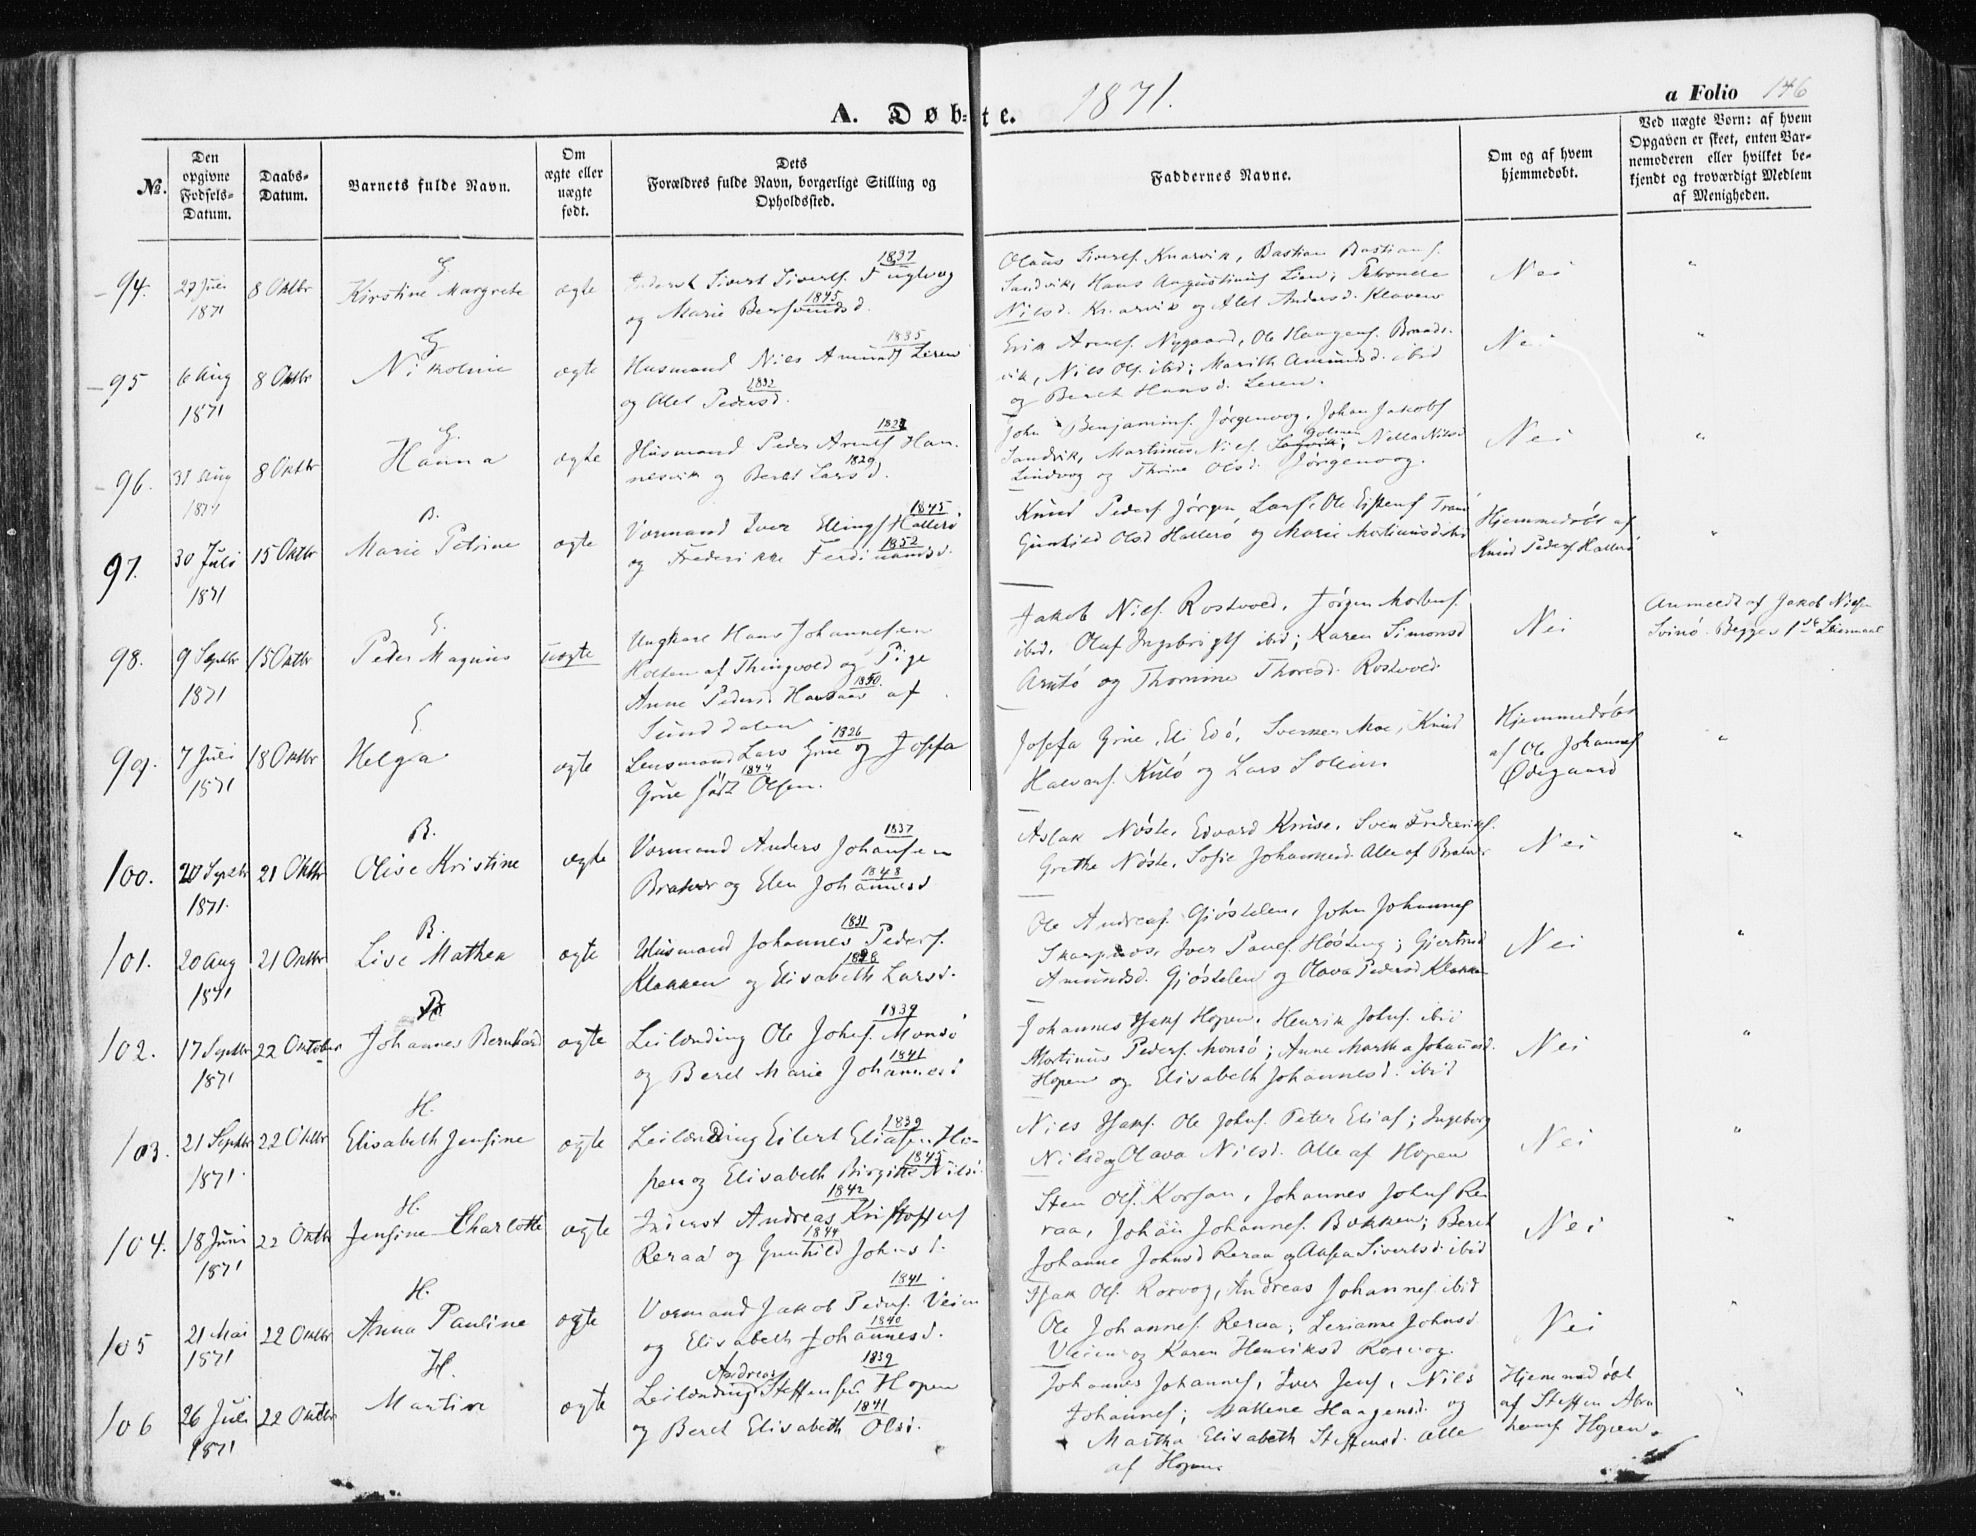 1871.
a Folio 146
A. Døbte.
No.
Den opgivne Fødsels-Datum.
Daabs-Datum.
Barnets fulde Navn.
Om ægte eller uægte født.
Dets Forældres fulde Navn, borgerlige Stilling og Opholdssted.
Faddernes Navne.
Om og af hvem hjemmedøbt.
Ved uægte Børn: af hvem Opgaven er skeet, enten Barnemoderen eller hvilket bekjendt og troværdigt Medlem af Menigheden.
94. 27 Juli 1871 8 Oktbr G. Kirstine Margrete ægte
Sivert Sivertsf. Fuglvog 1837
og Marie Bersvendsd. 1845
Olaus Sivertsf. Knarvik, Bastian Bastiansf.
Sandvik, Hans Augustinusf Lien; Petronelle
Nilsd. Knarvik og Alet Andersd. Kleven
Nei "
95 6 Aug 1871 8 Oktbr G. Nikoline ægte
Husmand Nils Amundsf Leren 1835
og Alet Pedersd. 1832
Erik Arntsf. Nygaard, Ole Haagensf. Bonds-
vik, Nils Olsf. ibid; Marith Amundsd. ibid
og Beret Hansd. Leren.
Nei "
96. 31 Aug 1871 8 Oktbr G. Hanna ægte
Husmand Peder Arntsf Han-
nesvik og Beret Larsd. 1829
John Benjaminsf. Jørgenvog, Johan Jakobsf
Sandvik, Martinus Nilsf. Nella Nilsd
Lindvog og Thrine Olsd. Jørgenvog.
Nei "
97. 30 Juli 1871 15 Oktbr B. Marie Petrine ægte
Vormand Iver Ellingsf Hallerø 1845
og Frederikke Ferdinandsd. 1852
Knud Pedersf Jørgen Larsf, Ole Eistensf
Gunhild Olsd Hallerø og Marie Martinusdatter
Hjemmedøbt af
Knud Pedersf Hallerø "
98. 9 Septbr 1871 15 Oktbr E. Peder Magnus uægte
Ungkarl Hans Johannesen
Holten af Thingvold og Pige
Anne Pedersd. af 1850.
Sunddalen
Jakob Nilsf. Rostvold, Jørgen Mortensf.
ibid, Olaf Ingebrigtsf ibid; Karen Simonsd
Arntø og Thomine Thoresd. Rostvold
Nei
Anmeldt af Jakob Nilsen
Svinø. Begges 1ste Leiermaal
99. 7 Juli 1871 18 Oktbr E. Helga ægte
Lensmand Lars Grüe og Josefa 1826
Grüe født Olsen. 1844
Josefa Grüe, Eli Edø, Sverker Moe, Knud
Halvorsf. Kulø og Lars Solem
Hjemmedøbt
af Ole Johannesf
Ødegaard "
100. 20 Septbr 1871. 21 Oktbr B. Olise Kristine ægte
Vormand Anders Johansen 1837
Bratvær og Elen Johannesd 1848
Aslak Nøste, Edvard Knise, Sven Frederiksf.
Grethe Nøste, Sofie Johannesd. Alle af Bratvær
Nei "
101. 20 Aug 1871 21 Oktbr B. Lise Mathea ægte
Husmand Johannes Pedersf. 1831
Klakken og Elisabeth Larsd. 1828
Ole Andreasf. Gjøstelen, John Johannesf
Skarpnes, Iver Paulsf. Høsteng; Gjertrud
Amundsd. Gjøstelen og Olava Pedersd Klakken
Nei "
102. 17 Septbr 1871 22 Oktober Johannes Bernhard ægte
Leilænding Ole Johnsf. Monsø 1839
og Beret Marie Johannesd 1841
Johannes Isaksf Hopen, Henrik Johnsf. ibid
Martinus Pedersf. Monsø; Anne Martha Johannesd.
Hopen og Elisabeth Johannesd. ibid
Nei "
103. 21 Septbr 1871. 22 Oktbr H. Elisabeth Jensine ægte
Leilænding Eilert Eliasen Ho- 1839
pen og Elisabeth Birgitte Nilsd. 1845
Nils Isaksf. Ole Johnsf. Peter Eliasf; Ingeborg
Nilsd og Olava Nilsd. Alle af Hopen
Nei "
104. 18 Juni 1871 22 Oktbr H. Jensine Charlotte ægte
Inderst Andreas Kristoffersf 1842
Reraa og Gunhild Johnsd. 1844
Sten Olsf. Korsan, Johannes Johnsf Re-
raa, Johan Johannesf. Bakken; Beret
Johanne Johnsd Reraa og Aasa Sivertsd. ibid
Nei "
105 21 Mai 1871 22 Oktbr H. Anna Pauline ægte
Vormand Jakob Pedersf. Veien 1841
og Elisabeth Johannesd. 1840
Isak Olsf. Rorvog, Andreas Johannesf. ibid
Ole Johannesf. Reraa; Lerianne Johnsd
Veien og Karen Henriksd Rorvog.
Nei "
106 26 Juli 1871 22 Oktbr H. Martin ægte
Leilænding Andreas Steffensen Hopen 1839
og Beret Elisabeth Olsd. 1841
Johannes Johannesf, Iver Jensf, Nils
Johannesf; Mallene Haagensd. og
Martha Elisabeth Steffensd. alle
af Hopen.
Hjemmedøbt
af Steffen Abra-
hamsf Hopen. "